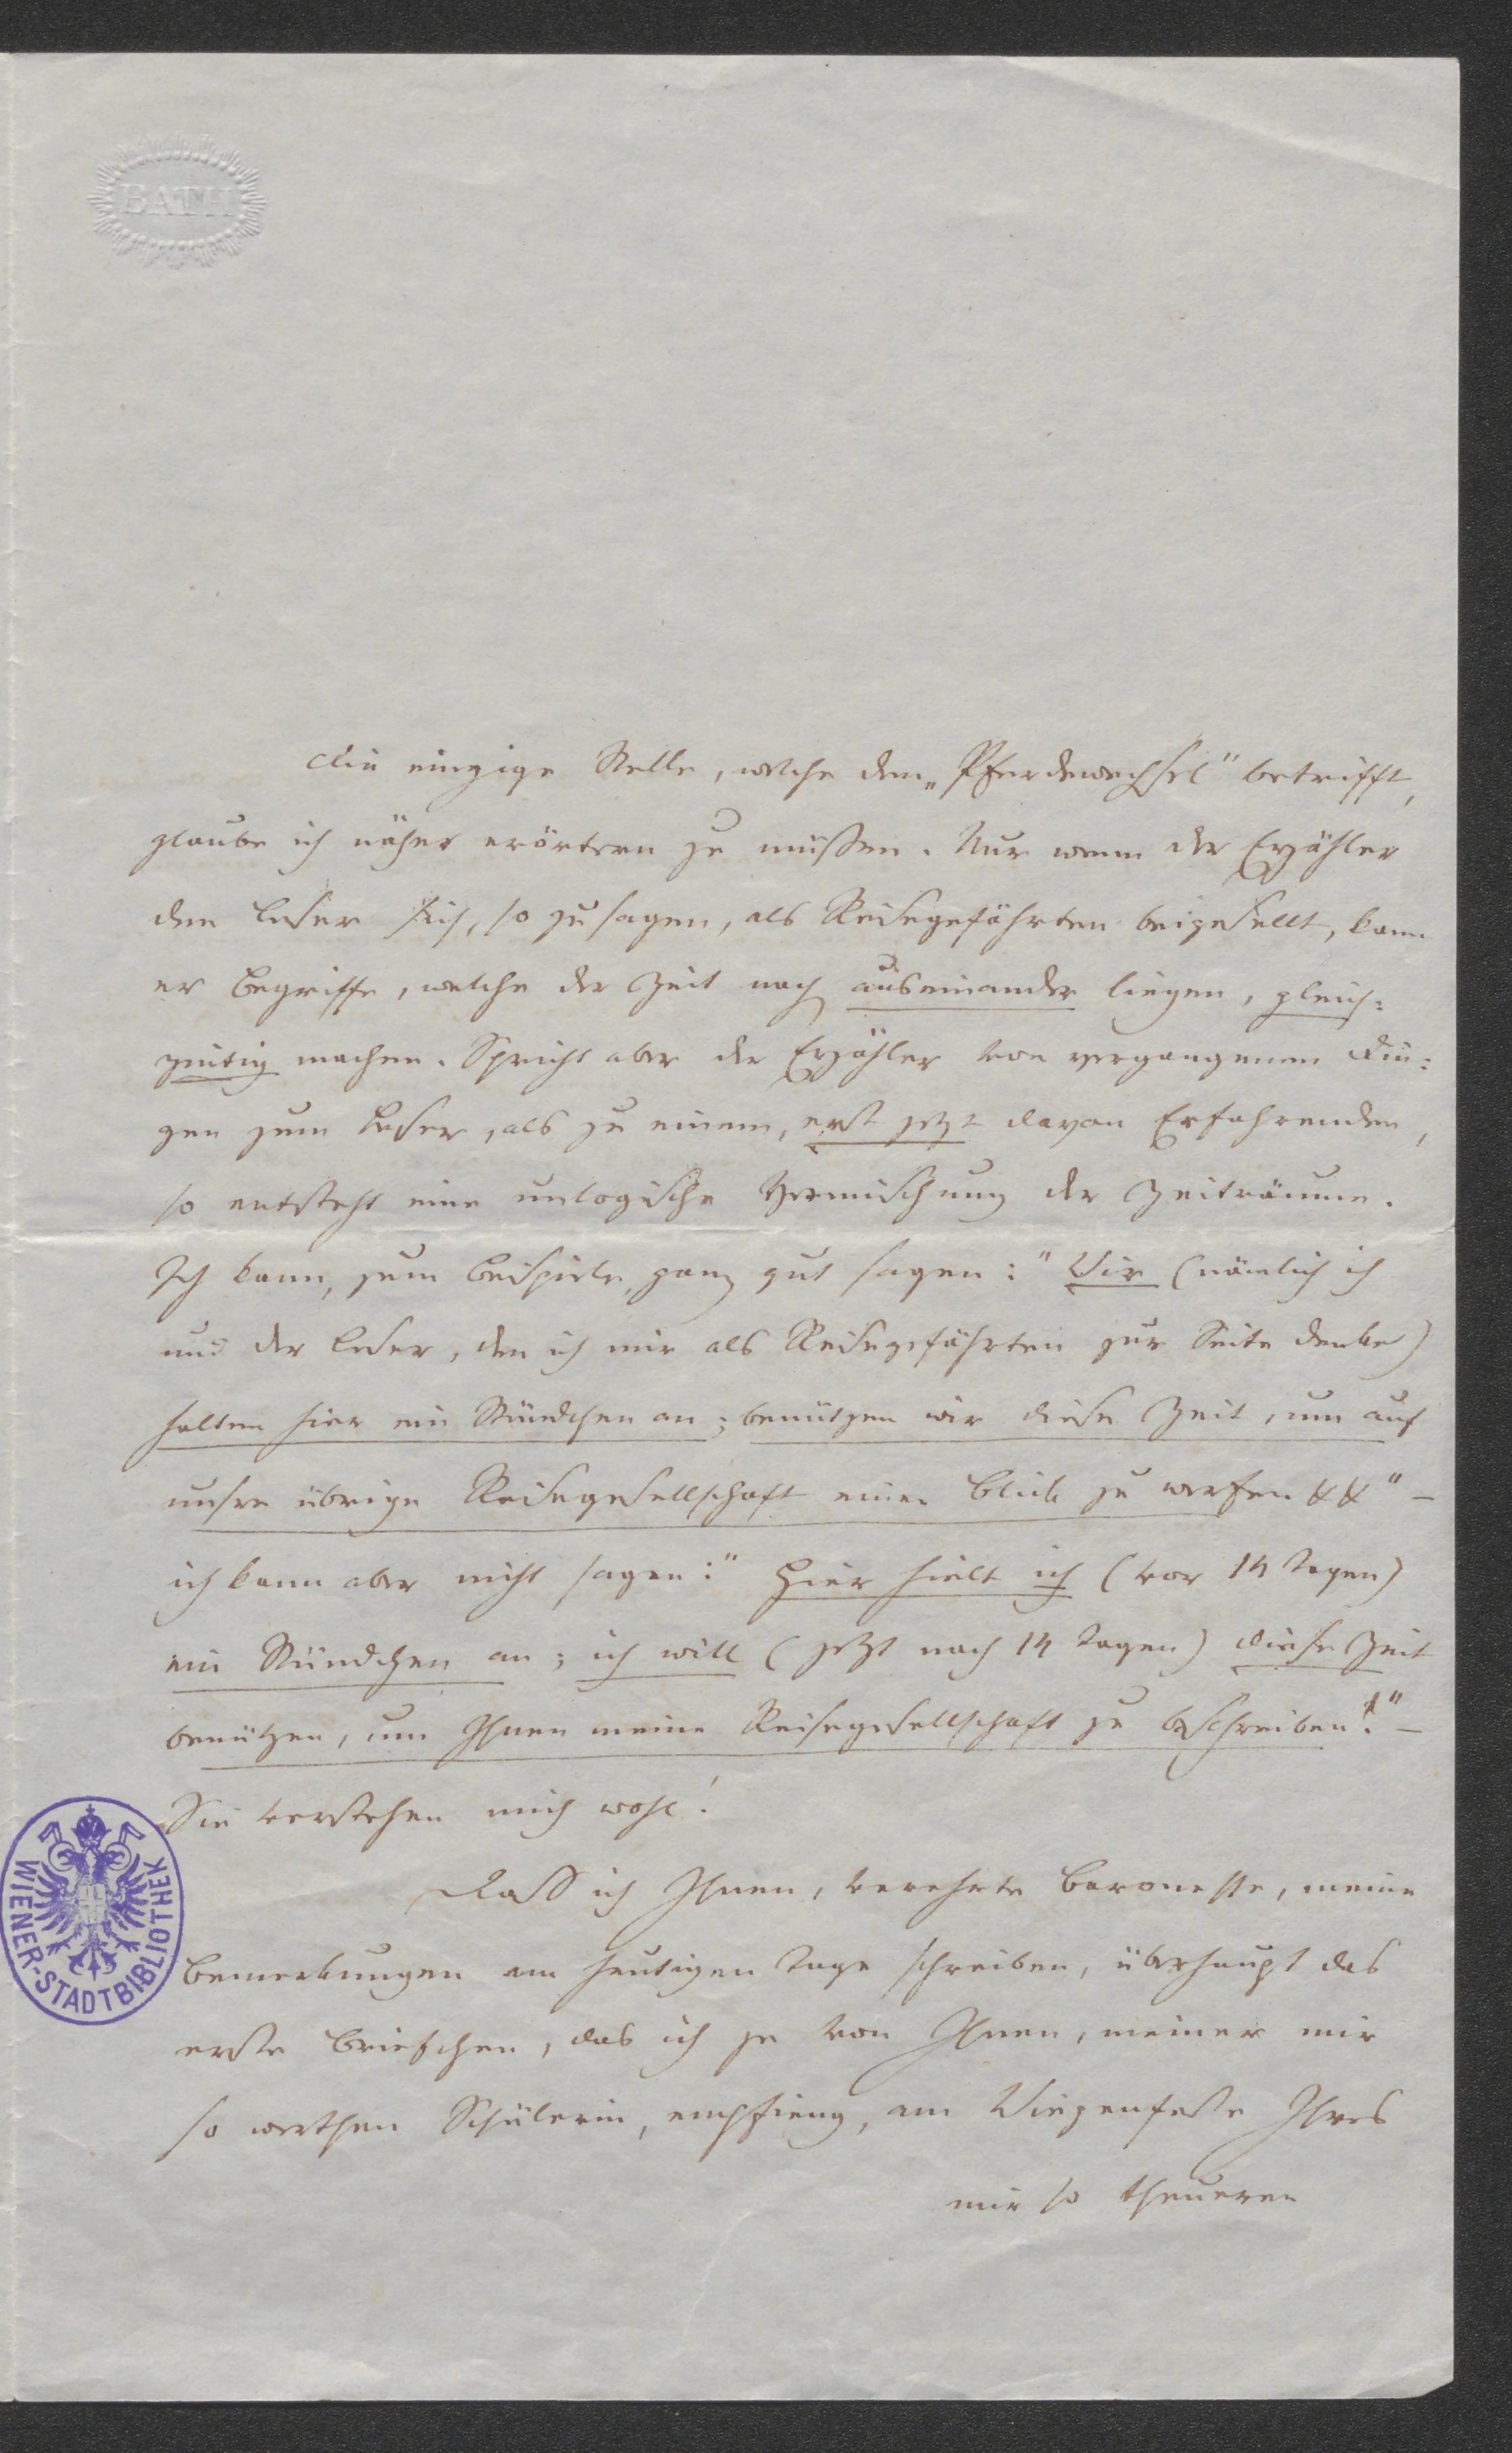 BATH
Die einzige Stelle, welche den „Pferdewechsel" betrifft,
glaube ich näher erörtern zu müssen. Nur wenn der Erzähler
den Leser sich, so zu sagen, als Reisegefährten beigesellt, kann
er Begriffe, welche der Zeit nach auseinander liegen, gleich=
zeitig machen. Spricht aber der Erzähler von vergangenen Din=
gen zum Leser, als zu einem, erst jetzt davon Erfahrenden,
so entsteht eine unlogische Vermischung der Zeiträume.
Ich kann, zum Beispiele, ganz gut sagen: "Wir (nämlich ich
und der Leser, den ich mir als Reisegefährten zur Seite denke)
halten hier ein Stündchen an; benützen wir diese Zeit, um auf
unsre übrige Reisegesellschaft einen Blick zu werfen" –
ich kann aber nicht sagen: "Hier hielt ich (vor 14 Tagen)
ein Stündchen an; ich will (jetzt nach 14 Tagen) diese Zeit
benützen, um Ihnen meine Reisegesellschaft zu beschreiben!" –
Sie verstehen mich wohl!
Dass ich Ihnen, verehrte Baronesse, meine
Bemerkungen am heutigen Tage schreiben, überhaupt das
erste Briefchen, das ich je von Ihnen, meiner mir
so werthen Schülerin, empfieng, am Wiegenfeste Ihres
mir so theueren
WIENER-STADTBIBLIOTHEK